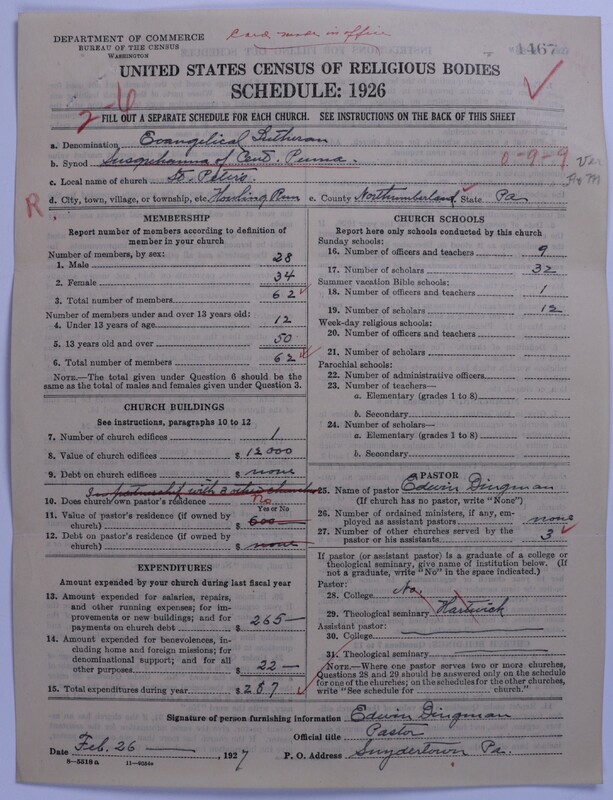 Card made in office
DEPARTMENT OF COMMERCE
BUREAU OF THE CENSUS
WASHINGTON
1467
UNITED STATES CENSUS OF RELIGIOUS BODIES
SCHEDULE: 1926
2-6
FILL OUT A SEPARATE SCHEDULE FOR EACH CHURCH. SEE INSTRUCTIONS ON THE BACK OF THIS SHEET
a. Denomination Evangelical Lutheran
b. Synod Susquehanna of Cent. Penna. 0-9-9
c. Local name of church St. Peters
R d. City, town, village, or township, etc. e. County Northumberland State Pa
MEMBERSHIP
Report number of members according to definition of
member in your church
Number of members, by sex:
1. Male 28
2. Female 34
3. Total number of members 62
Number of members under and over 13 years old:
4. Under 13 years of age 12
5. 13 years old and over 50
6. Total number of members 62
NOTE.—The total given under Question 6 should be the
same as the total of males and females given under Question 3.
CHURCH BUILDINGS
See instructions, paragraphs 10 to 12
7. Number of church edifices 1
8. Value of church edifices $ 12000
9. Debt on church edifices $ none
In partnership with 3 other churches
10. Does church own pastor's residence No
Yes or No
11. Value of pastor's residence (if owned by
church) $ 600
12. Debt on pastor's residence (if owned by
church) $ none
EXPENDITURES
Amount expended by your church during last fiscal year
13. Amount expended for salaries, repairs,
and other running expenses; for im-
provements or new buildings; and for
payments on church debt $ 265—
14. Amount expended for benevolences, in-
cluding home and foreign missions; for
denominational support; and for all
other purposes $ 22—
15. Total expenditures during year $ 287
CHURCH SCHOOLS
Report here only schools conducted by this church
Sunday schools:
16. Number of officers and teachers 9
17. Number of scholars 32
Summer vacation Bible schools:
18. Number of officers and teachers 1
19. Number of scholars 12
Week-day religious schools:
20. Number of officers and teachers
21. Number of scholars
Parochial schools:
22. Number of administrative officers
23. Number of teachers—
a. Elementary (grades 1 to 8)
b. Secondary
24. Number of scholars—
a. Elementary (grades 1 to 8)
b. Secondary
PASTOR
25. Name of pastor Edwin Dingman
(If church has no pastor, write "None")
26. Number of ordained ministers, if any, em-
ployed as assistant pastors none
27. Number of other churches served by the
pastor or his assistants 3
If pastor (or assistant pastor) is a graduate of a college or
theological seminary, give name of institution below. (If
not a graduate, write "No" in the space indicated.)
Pastor:
28. College No
29. Theological seminary Hartwick
Assistant pastor:
30. College
31. Theological seminary
NOTE.—Where one pastor serves two or more churches,
Questions 28 and 29 should be answered only on the schedule
for one of the churches; on the schedules for the other churches,
write "See schedule for ........ church."
Signature of person furnishing information Edwin Dingman
Official title Pastor
Date Feb. 26, 1927 P. O. Address Snydertown Pa.
8—5518a 11—9264a